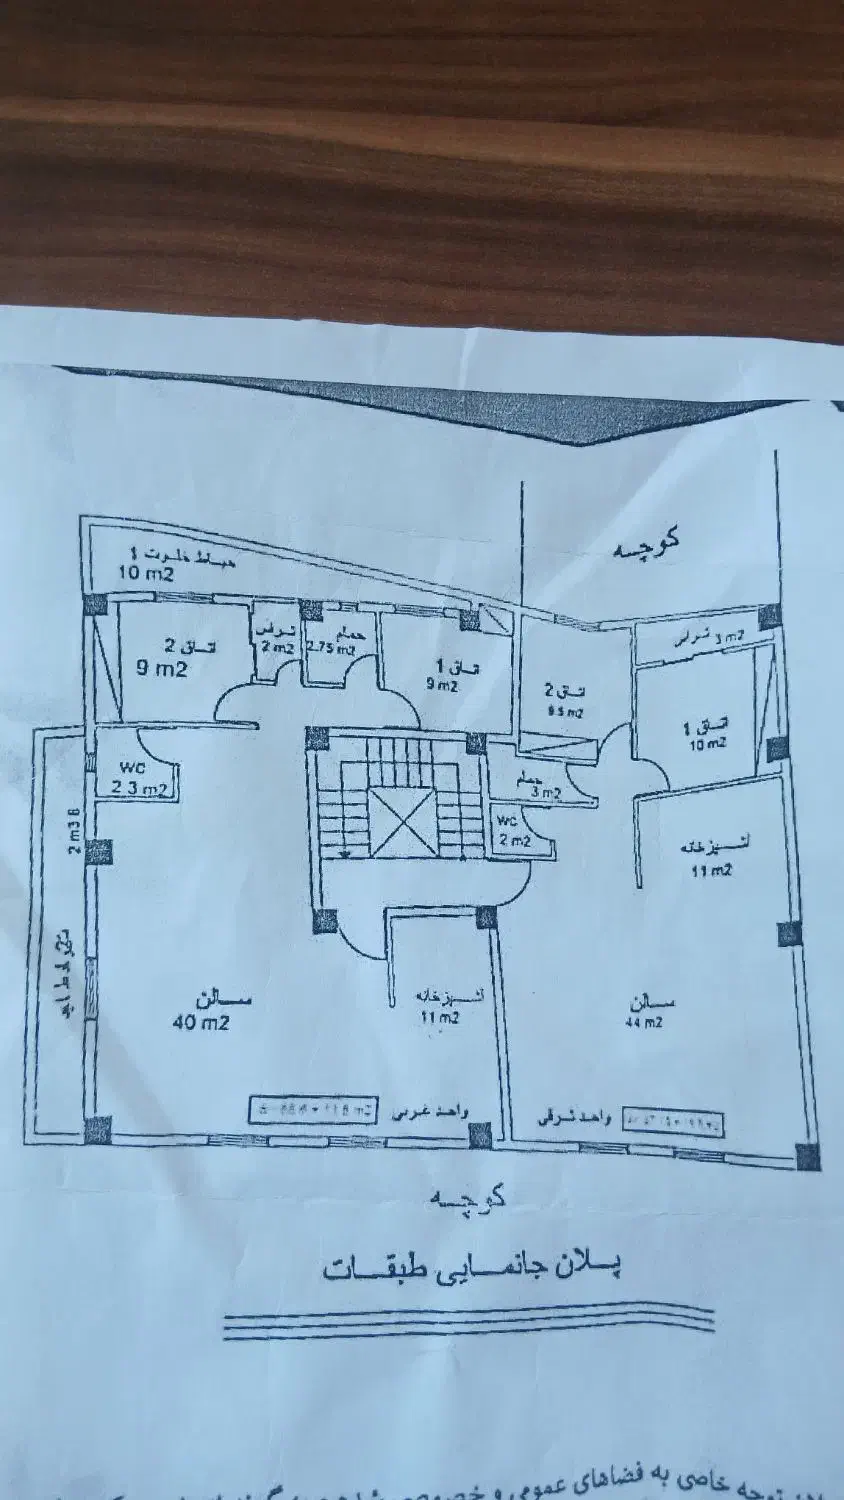 کوچه
حیاط خلوت 1
10 m2
اتاق 2
9 m2
تراس
2 m2
حمام
2.75 m2
اتاق 1
9 m2
اتاق 2
تراس 3 m2
اتاق 1
10 m2
WC
2.3 m2
حمام
3 m2
WC
2 m2
آشپزخانه
11 m2
سالن
40 m2
آشپزخانه
11 m2
سالن
44 m2
واحد غربی
واحد شرقی
کوچه
پلان جانمایی طبقات
توجه خاصی به فضاهای عمومی و خصوصی